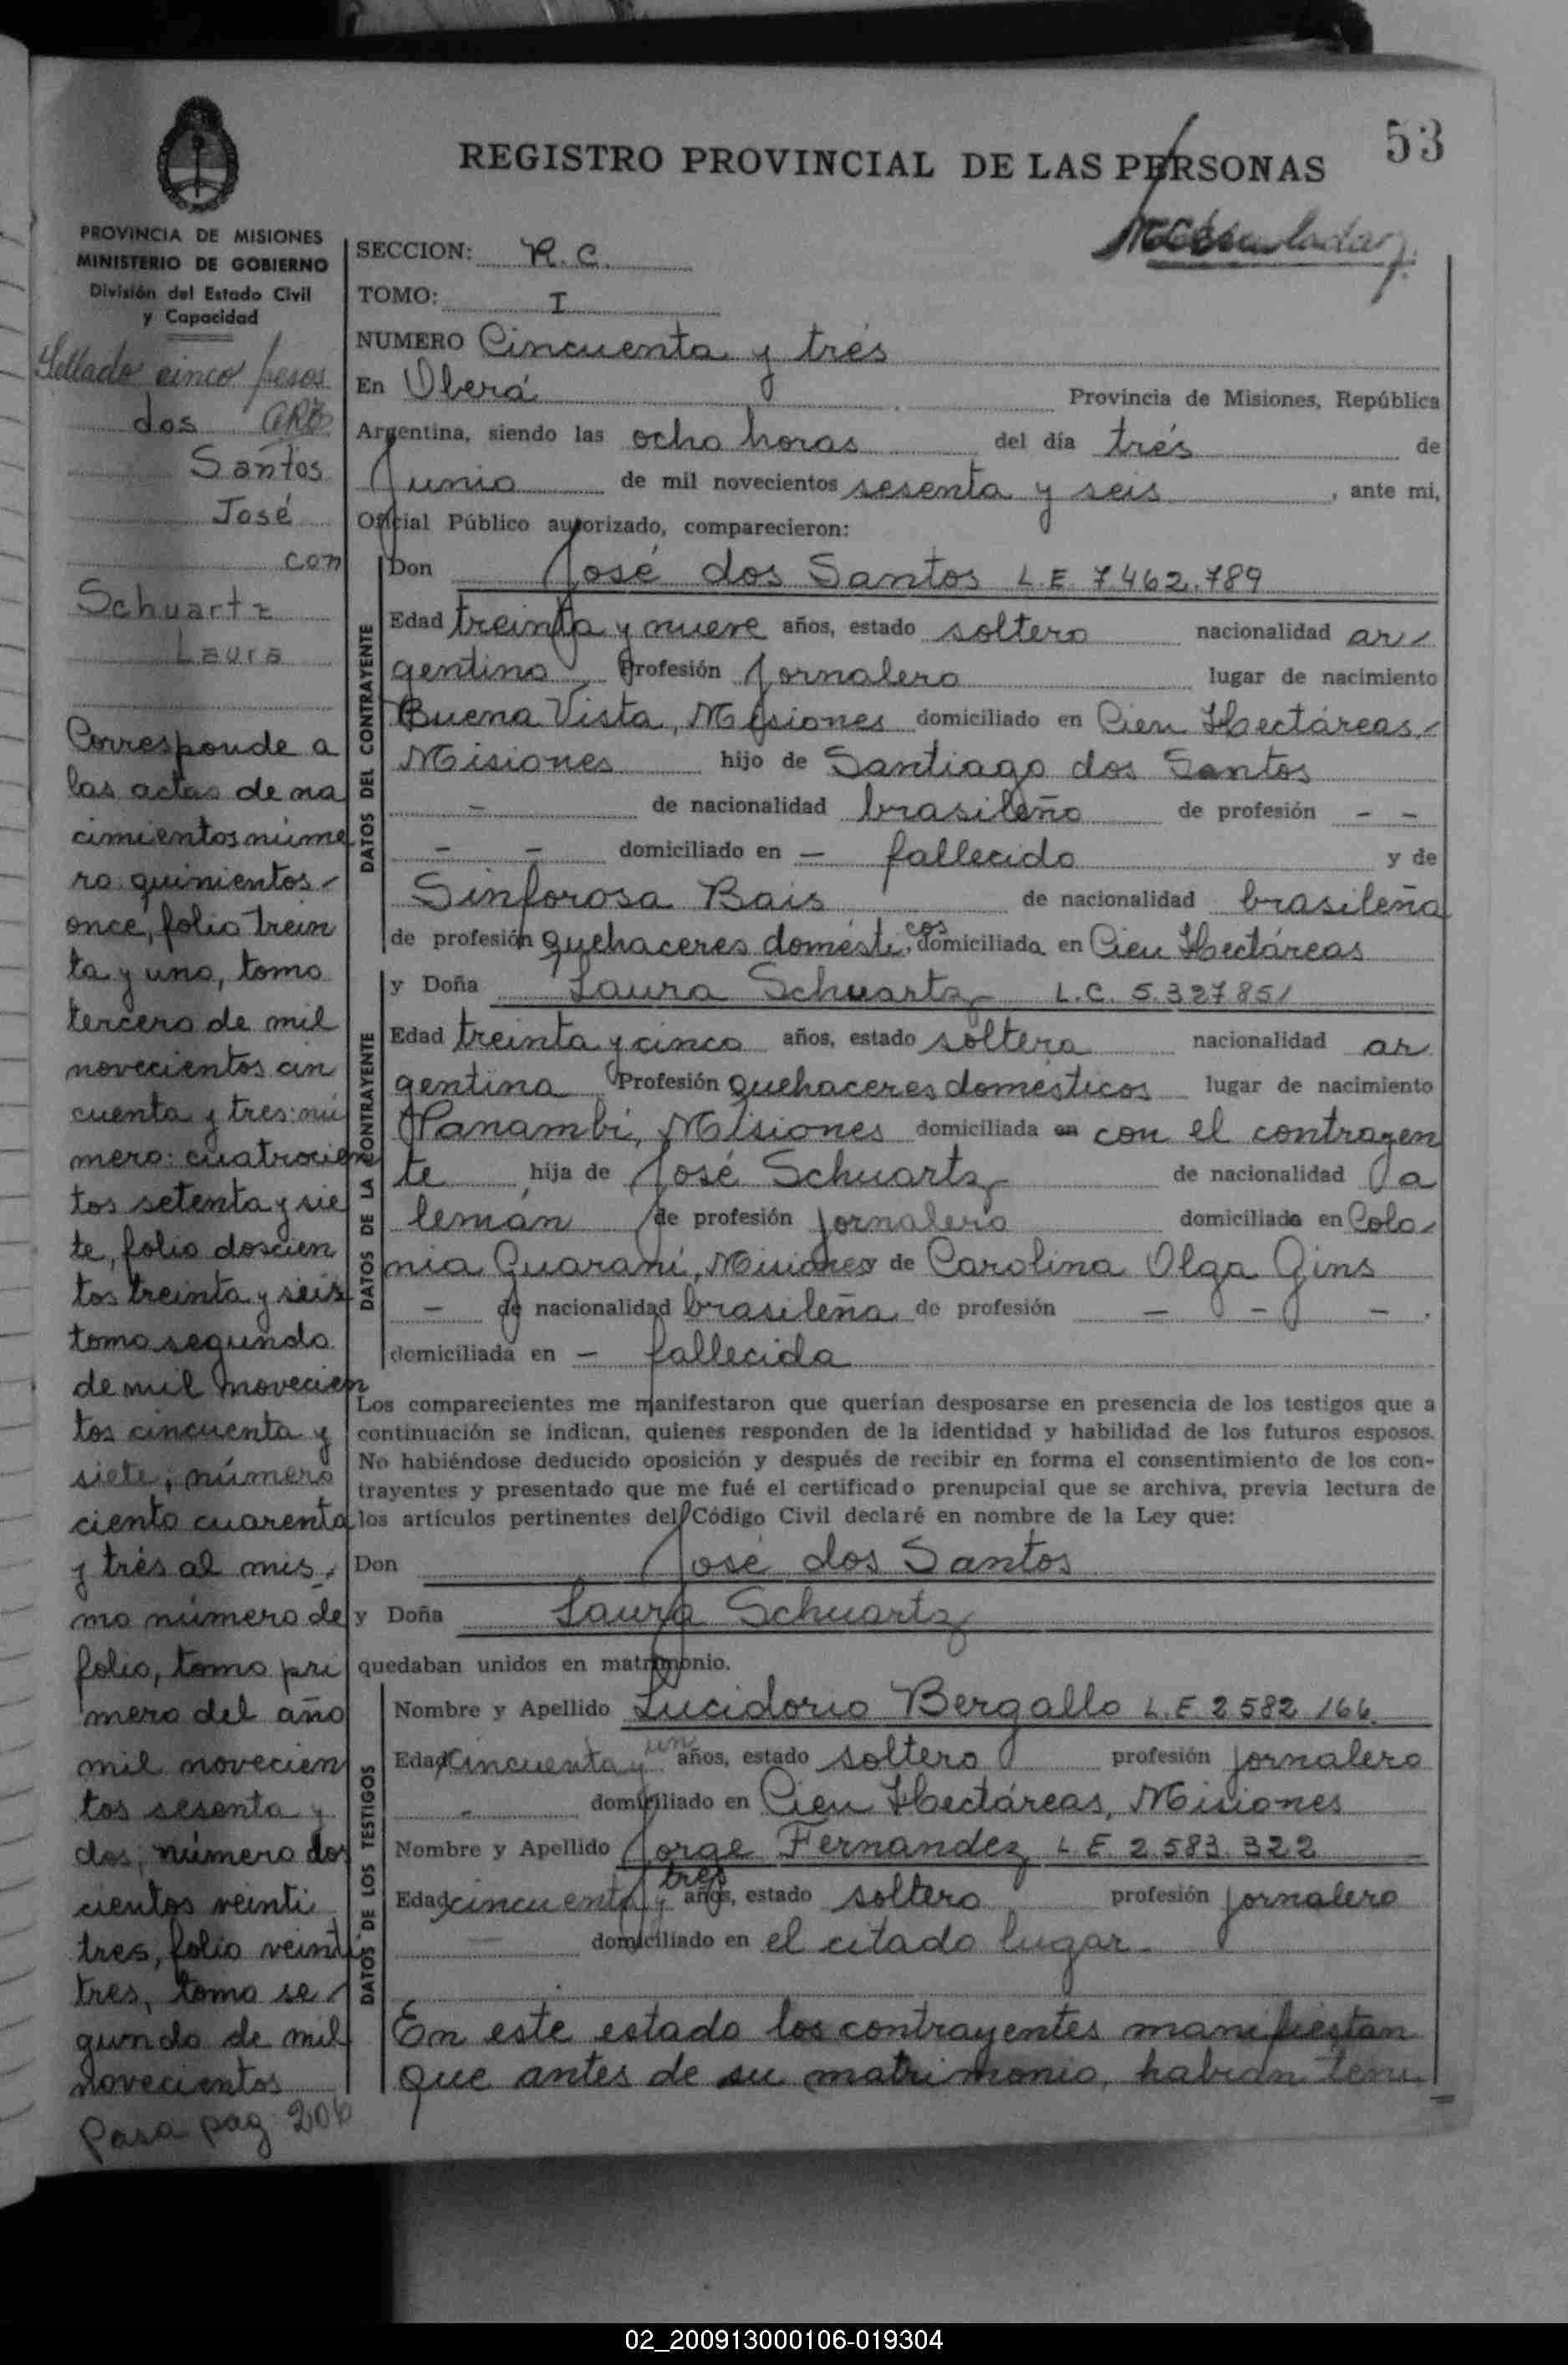 53
REGISTRO PROVINCIAL DE LAS PERSONAS
PROVINCIA DE MISIONES
MINISTERIO DE GOBIERNO
División del Estado Civil
y Capacidad
Sellado cinco pesos
dos
Santos
José
con
Schuartz
Laura
Corresponde a
las actas de na
cimientos núme
ro quinientos-
once, folio trein
ta y uno, tomo
tercero de mil
novecientos cin
cuenta y tres: nú
mero: cuatrocien
tos setenta y sie
te, folio doscien
tos treinta y seis
tomo segundo
de mil novecien
tos cincuenta y
siete; número
ciento cuarenta
y trés al mis-
mo número de
folio, tomo pri
mero del año
mil novecien
tos sesenta y
dos; número dos
cientos veinti
tres, folio veinti
tres, tomo se-
gundo de mil
novecientos
Pasa pag 206
SECCION: R.C.
TOMO: I
NUMERO Cincuenta y trés
En Oberá Provincia de Misiones, República
Argentina, siendo las ocho horas del día trés de
Junio de mil novecientos sesenta y seis, ante mi,
Oficial Público autorizado, comparecieron:
DATOS DEL CONTRAYENTE
Don José dos Santos L.E. 7.462.789
Edad treinta y nueve años, estado soltero nacionalidad ar-
gentino Profesión Jornalero lugar de nacimiento
Buena Vista, Misiones domiciliado en Cien Hectáreas,-
Misiones hijo de Santiago dos Santos
- de nacionalidad brasileño de profesión - -
- - domiciliado en - fallecido y de
Sinforosa Bais de nacionalidad brasileña
de profesión quehaceres domésticos domiciliada en Cien Hectáreas
DATOS DE LA CONTRAYENTE
y Doña Laura Schuartz L.C. 5.327851
Edad treinta y cinco años, estado soltera nacionalidad ar
gentina Profesión quehaceres domésticos lugar de nacimiento
Panambí, Misiones domiciliada en con el contrayen
te hija de José Schuartz de nacionalidad a
lemán de profesión jornalero domiciliado en Colo-
nia Guaraní, Misiones y de Carolina Olga Gins
- de nacionalidad brasileña de profesión - - - .
domiciliada en - fallecida
Los comparecientes me manifestaron que querían desposarse en presencia de los testigos que a
continuación se indican, quienes responden de la identidad y habilidad de los futuros esposos.
No habiéndose deducido oposición y después de recibir en forma el consentimiento de los con-
trayentes y presentado que me fué el certificado prenupcial que se archiva, previa lectura de
los artículos pertinentes del Código Civil declaré en nombre de la Ley que:
Don José dos Santos
y Doña Laura Schuartz
quedaban unidos en matrimonio.
DATOS DE LOS TESTIGOS
Nombre y Apellido Lucidorio Bergallo L.E 2.582.166
Edad cincuenta y un años, estado soltero profesión jornalero
- domiciliado en Cien Hectáreas, Misiones
Nombre y Apellido Jorge Fernandez L.E. 2.583.322
Edad cincuenta y tres años, estado soltero profesión jornalero
- domiciliado en el citado lugar.
En este estado los contrayentes manifiestan
que antes de su matrimonio, habian teni
02_200913000106-019304